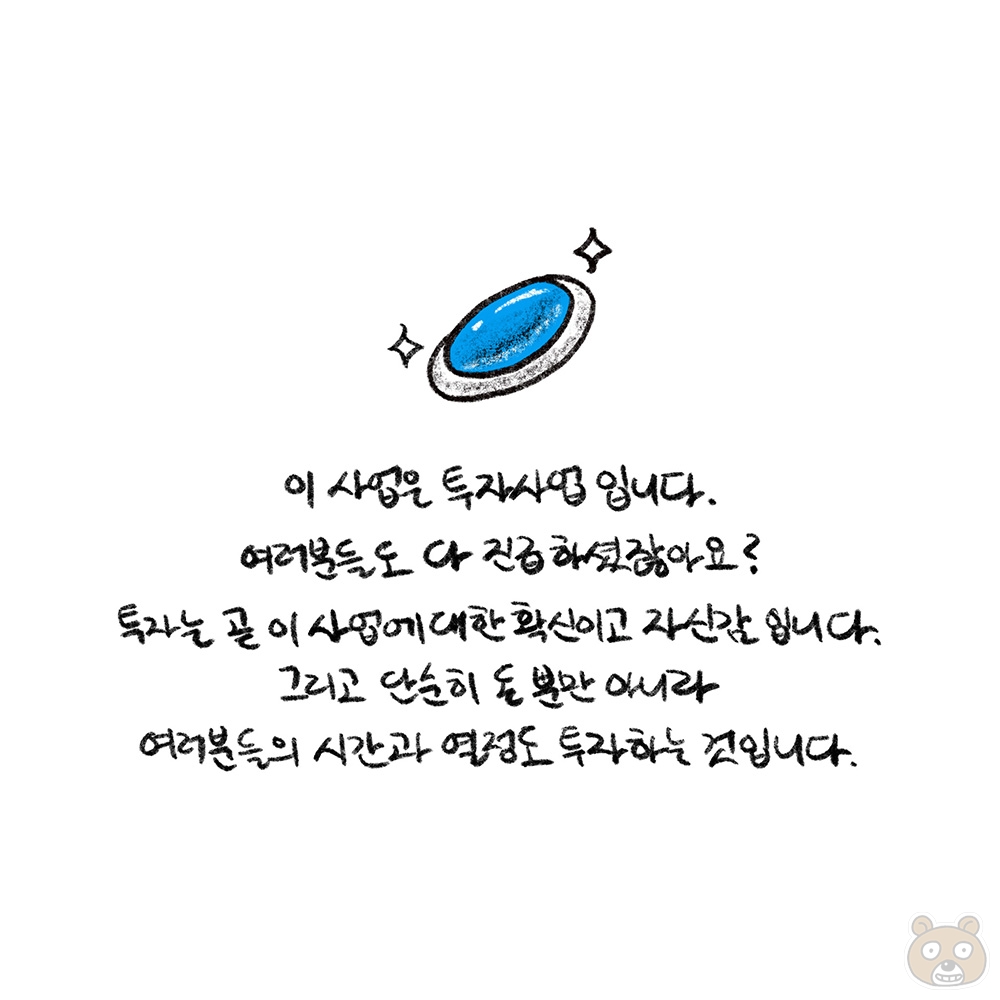 이 사업은 투자사업 입니다.
여러분들도 다 진급하셨잖아요?
투자는 곧 이 사업에 대한 확신이고 자신감 입니다.
그리고 단순히 돈 뿐만 아니라
여러분들의 시간과 열정도 투자하는 것입니다.